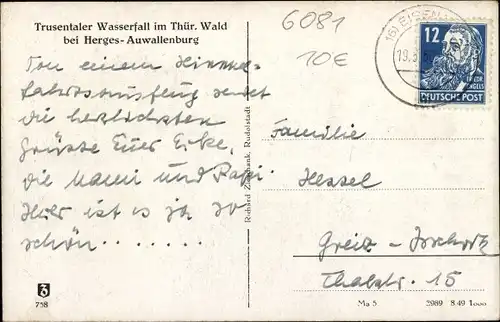 Trusentaler Wasserfall im Thür. Wald
bei Herges-Auwallenburg
6081
10€
(16) EISEN
19.5.5
12
FRIEDR. ENGELS
DEUTSCHE POST
Von einem Himmel-
fahrtsausflug sendet
die herzlichsten
Grüsse Euer Erke,
die Mami und Papi.
Hier ist es ja so
schön.......
Richard Zieschank, Rudolstadt
Familie
Hessel
Greiz - Irchwitz
Thalstr. 15
758
Ma 5 2989 8.49 1000